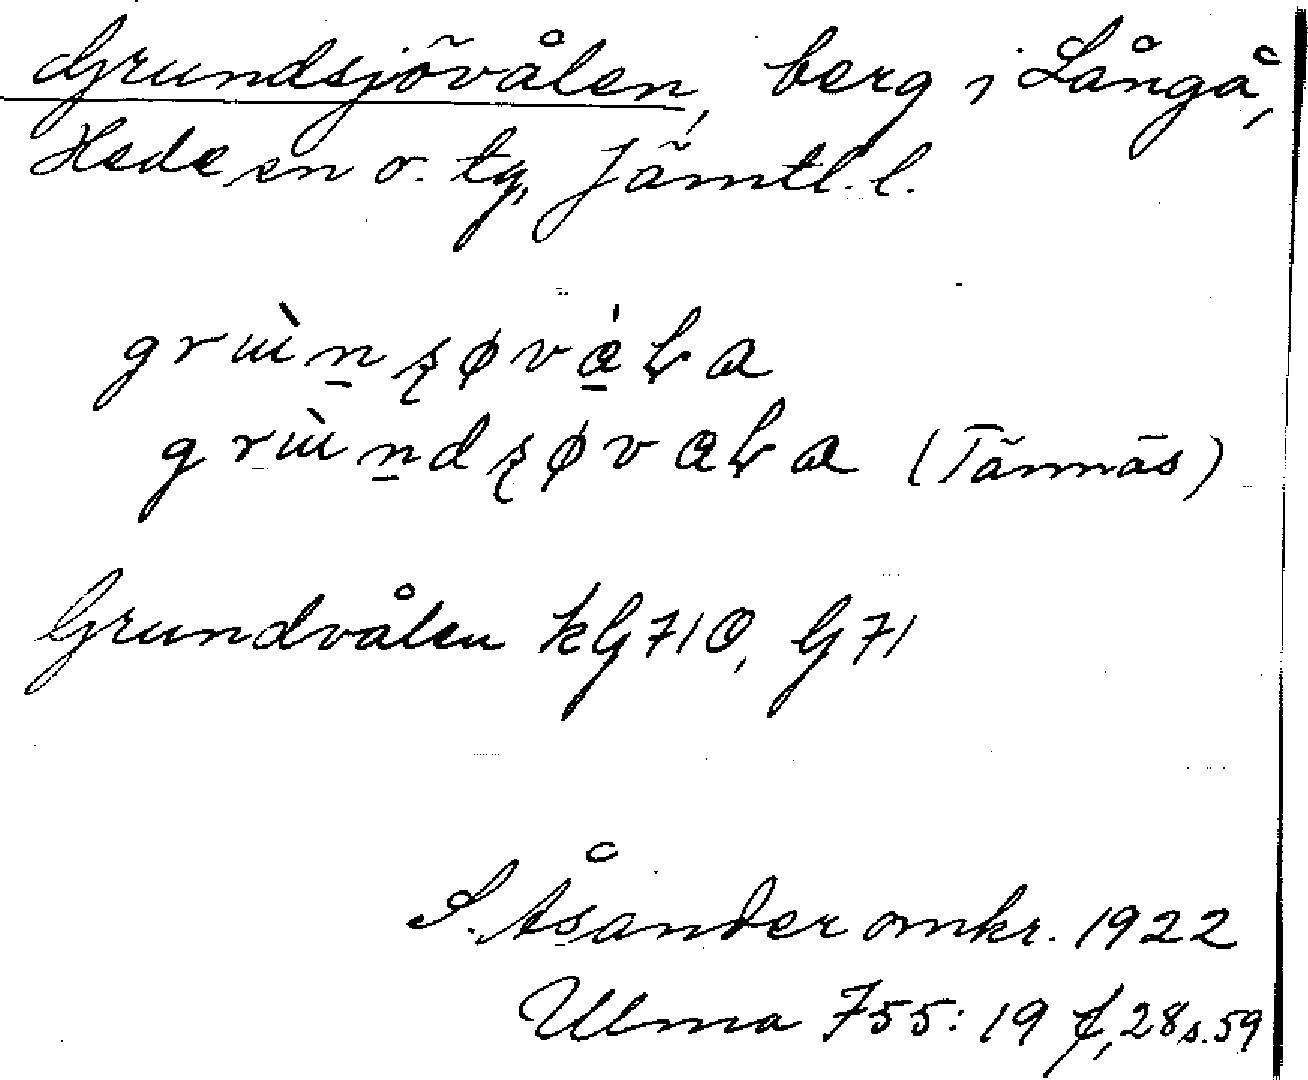 Grundsjövålen, berg i Långå,
Hede sn o. tg, Jämtl. l.
(Tännäs)
Grundvålen kG710, G71
S. Åsander omkr. 1922
Ulma 755: 19 f, 28 s. 59